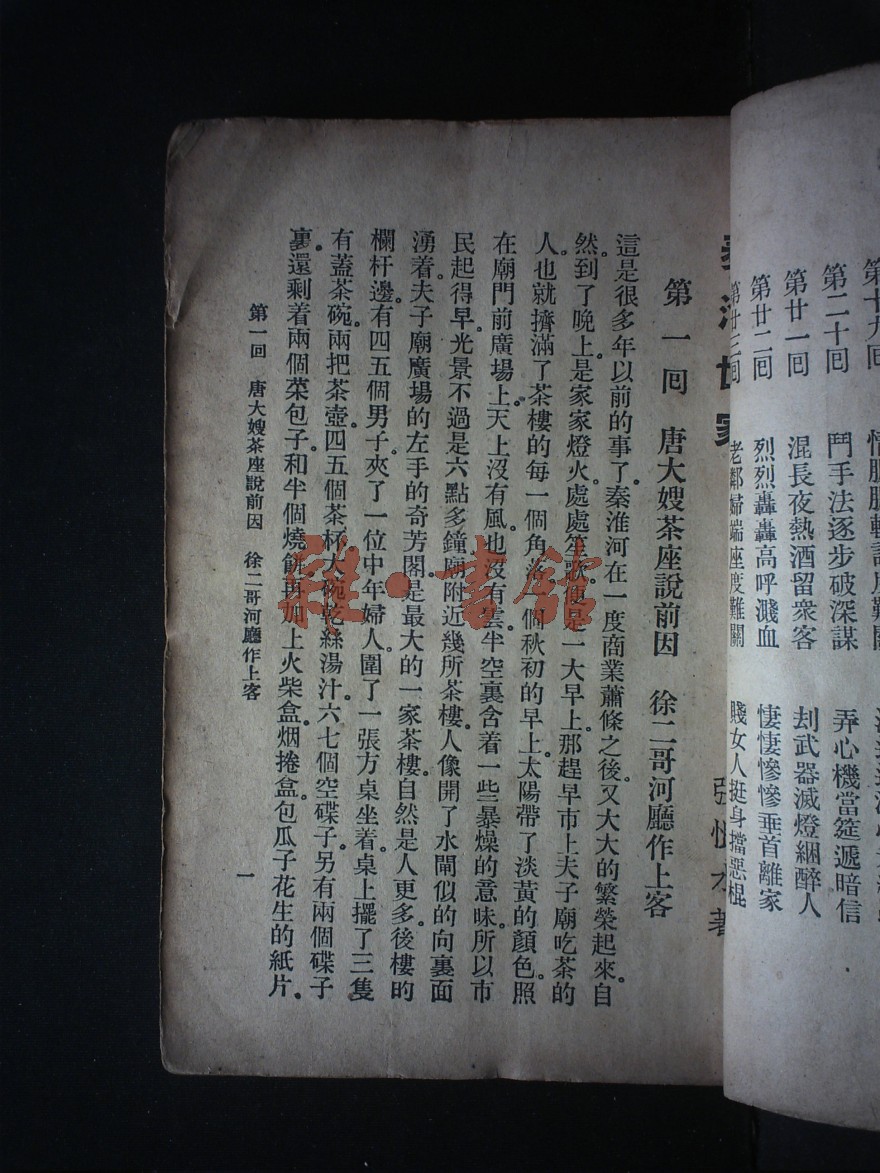 第二十回　鬥手法逐步破深謀　弄心機當筵遞暗信
第廿一回　混長夜熱酒留衆客　刦武器滅燈綑醉人
第廿二回　烈烈轟轟高呼濺血　悽悽慘慘垂首離家
第廿三回　老鄰婦端座度難關　賤女人挺身擋惡棍
第一回　唐大嫂茶座說前因　徐二哥河廳作上客
這是很多年以前的事了。秦淮河在一度商業蕭條之後。又大大的繁榮起來。自
然。到了晚上。是家家燈火。處處笙歌。便是一大早上。那趕早市上夫子廟吃茶的
人。也就擠滿了茶樓的每一個角落。一個秋初的早上。太陽帶了淡黃的顏色。照
在廟門前廣場上。天上沒有風。也沒有雲。半空裏含着一些暴燥的意味。所以市
民起得早。光景不過是六點多鐘。廟附近幾所茶樓。人像開了水閘似的向裏面
湧着。夫子廟廣場的左手的奇芳閣。是最大的一家茶樓。自然是人更多。後樓的
欄杆邊。有四五個男子。夾了一位中年婦人。圍了一張方桌坐着。桌上擺了三隻
有蓋茶碗。兩把茶壺。四五個茶杯。大碗乾絲湯汁。六七個空碟子。另有兩個碟子
裏。還剩着兩個菜包子。和半個燒餅。再加上火柴盒。烟捲盒。包瓜子花生的紙片。
第一回　唐大嫂茶座說前因　徐二哥河廳作上客
一
雜·書館